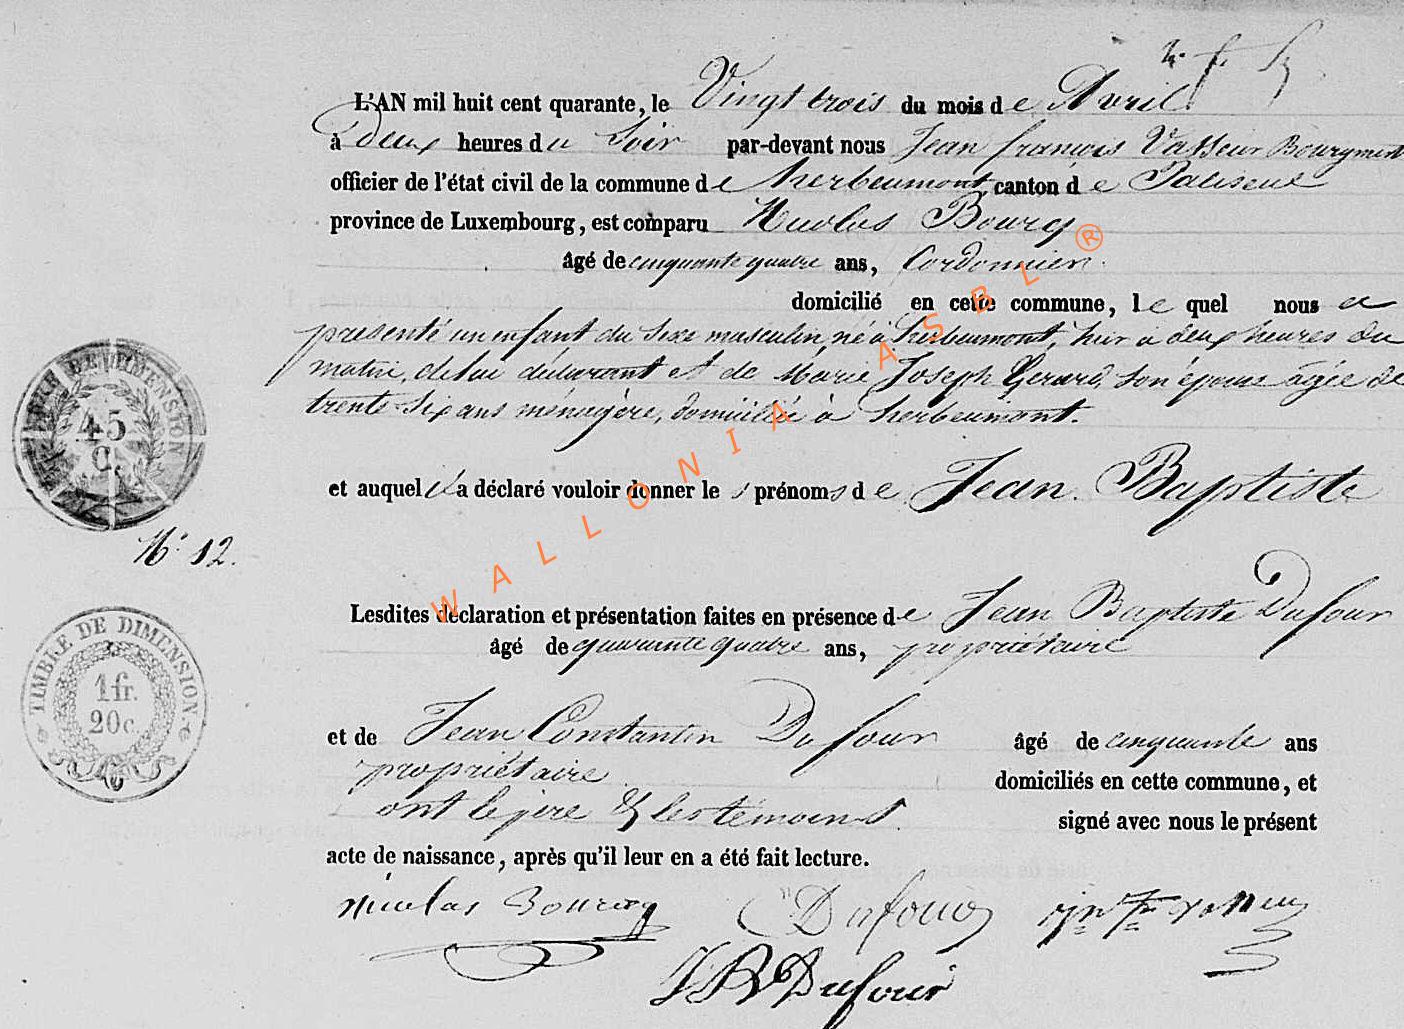 L'AN mil huit cent quarante, le Vingt trois du mois de Avril
à deux heures du Soir par-devant nous Jean françois Vasseur Bourgmest
officier de l'état civil de la commune de herbeumont, canton de Paliseul
province de Luxembourg, est comparu Nicolas Bourcy
âgé de cinquante quatre ans, Cordonnier.
domicilié en cette commune, lequel nous a
présenté un enfant du sexe masculin, né à herbeumont, hier à deux heures du
matin, de lui déclarant et de Marie Joseph Gerard, son épouse agée de
trente-six ans ménagère, domiciliée à herbeumont.
et auquel il a déclaré vouloir donner les prénoms de Jean Baptiste
TIMBRE DE DIMENSION
45
C.
N.° 12.
Lesdites déclaration et présentation faites en présence de Jean Baptiste Dufour
âgé de quarante quatre ans, propriétaire
TIMBRE DE DIMENSION
1 fr.
20 c.
et de Jean Constantin Dufour âgé de cinquante ans
propriétaire domiciliés en cette commune, et
ont le père & les témoins signé avec nous le présent
acte de naissance, après qu'il leur en a été fait lecture.
nicolas Bourcy Dufour
J B Dufour
WALLONIA ASBL ®